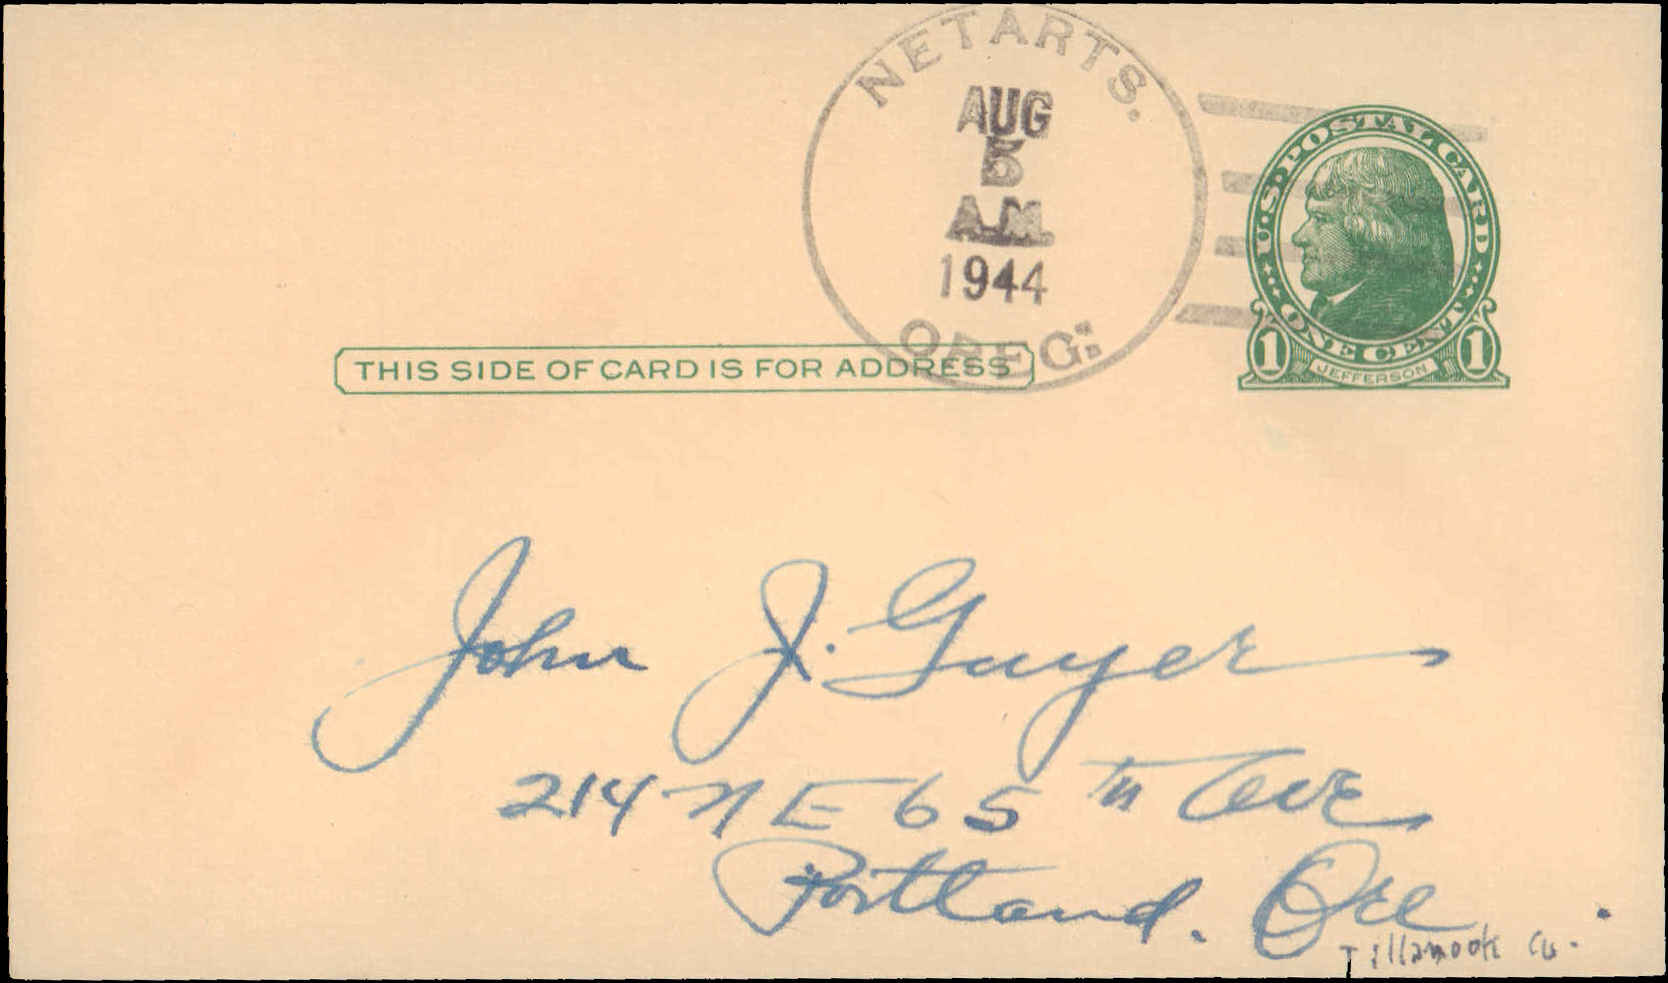 NETARTS.
AUG
5
A.M.
1944
OREG.
U.S. POSTAL CARD
ONE CENT
1 JEFFERSON 1
THIS SIDE OF CARD IS FOR ADDRESS
John J. Guyer
214 N E 65 th Ave
Portland. Ore
Tillamook Co.